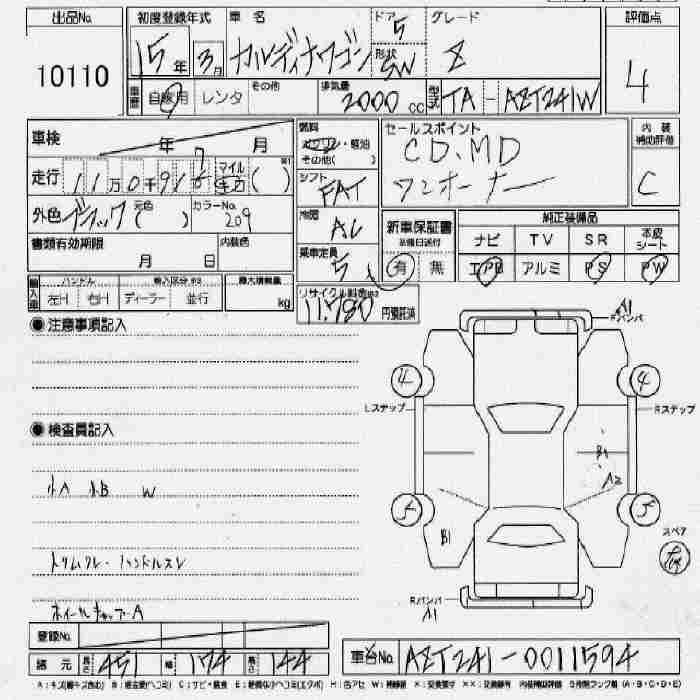 出品No. 初度登録年式 車名 ドア グレード 評価点
10110 15年 3月 カルディナワゴン 5 Z 4
形状 SW
車歴 自家用 レンタ その他 排気量 2000cc 型式 TA - AZT241W
車検 年 7月
燃料 ガソリン・軽油
その他( )
セールスポイント
CD、MD
ワンオーナー
内装
補助評価
C
走行 11万0千91 マイル キロ ( )
シフト FAT
外色 ブラック 元色( ) カラーNo. 209
冷房 AC
新車保証書
有 無
純正装備品
ナビ TV SR 本皮シート
エアB アルミ PS PW
書類有効期限 内装色
月 日
乗車定員 5人
輸入車 ハンドル 輸入区分 最大積載量
左H 右H ディーラー 並行 kg
リサイクル料金
11,780 円預託済
●注意事項記入
A1
Fバンパ
4 4
Lステップ Rステップ
●検査員記入
B1
A2
小A 小B W
5 5
B1
スペア
トリムワレ・ハンドルスレ
Rバンパ
A1
ホイールキャップーA
登録No.
諸元 長さ 451 幅 174 高さ 144
車台No. AZT241-0011594